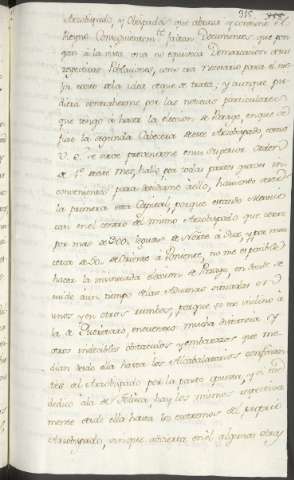 315
Arzobispado, y Obispados que abraza y contiene el
Reyno. Consiguientem.te faltan Documentos que pon-
gan à la vista una no equivoca Demarcacion de sus
respectivas Poblaciones, como era necesario para el me-
jor exito de la idea que se trata; y aunque pu-
diera contraherme por las noticias particulares
que tengo à hacer la eleccion de Parage, en que se
fixe la segunda Cabecera de este Arzobispado, como
V. E. se sirve prevenirme en su Superior Orden
de 1.º de este mes, hallo por todas partes graves in-
convenientes para decidirme à ello, haviendo de ser
la primera esta Capital; porque estando situada
en el centro del mismo Arzobispado que corre
por mas de 200 leguas de Norte à Sur, y por mas
cerca de 50 de Oriente à Poniente, no me es posible
hacer la insinuada eleccion de Parage, en donde se
cuide à un tiempo de las Aduanas situadas en
unos y en otros rumbos; porque si me inclino à
la de Queretaro, encuentro mucha distancia y
otros invencibles obstaculos y embarazos que me-
dian desde ella hasta los Alcabalatorios confinan-
tes al Arzobispado por la parte opuesta, y si me
dedico à la de Toluca, hay los mismos respectiva-
mente desde ella hasta los extremos del propio
Arzobispado, aunque advierta en el algunas otras